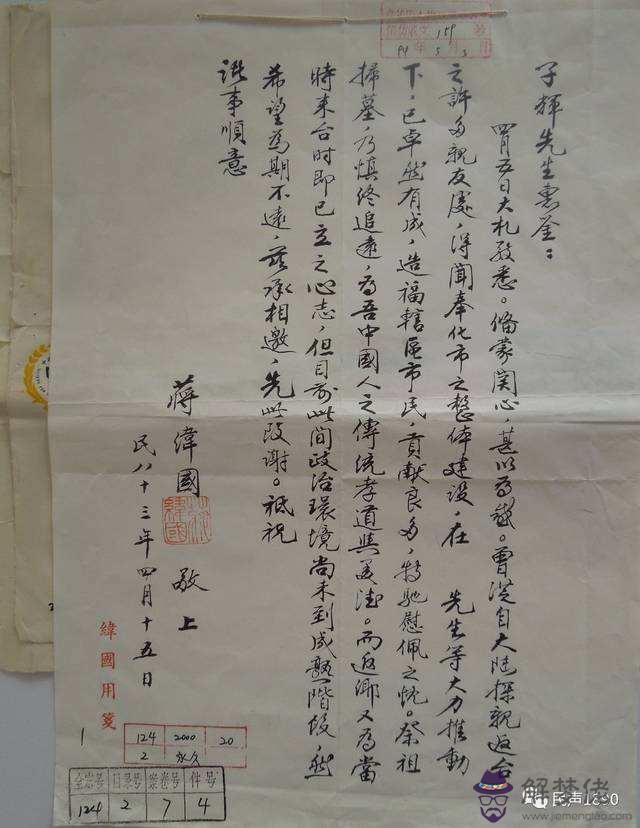 子輝先生惠鉴：
四月五日大札敬悉。備蒙関心，甚以為感。曾從自大陆探親返台
之許多親友處，得聞奉化市之整体建設，在 先生等大力推動
下，已卓然有成，造福轄區市民，貢献良多，特馳慰佩之忱。祭祖
掃墓，乃慎終追遠，為吾中國人之傳統孝道與美德。而返鄉又為當
時来台时即已立之心志，但目前此間政治環境尚未到成熟階段，然
希望為期不遠，茲承相邀，先此致謝。祗祝
諸事順意
蔣緯國 敬上
民八十三年四月十五日
緯國用箋
159
94年5月3日
124 2000 20
2 永久
1
全宗号 目录号 案卷号 件号
124 2 7 4
民声1890
解梦佬
www.jiemenglao.com